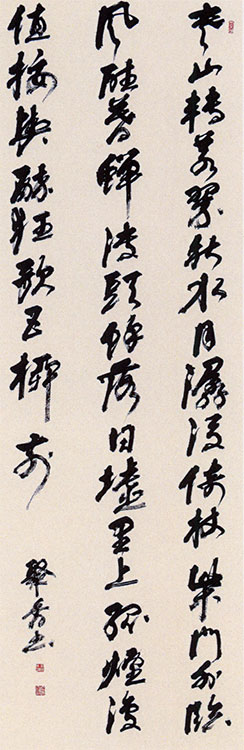 寒山轉蒼翠秋水日潺湲倚杖柴門外臨
風聽暮蟬渡頭餘落日墟里上孤煙復
值接輿醉狂歌五柳前
書